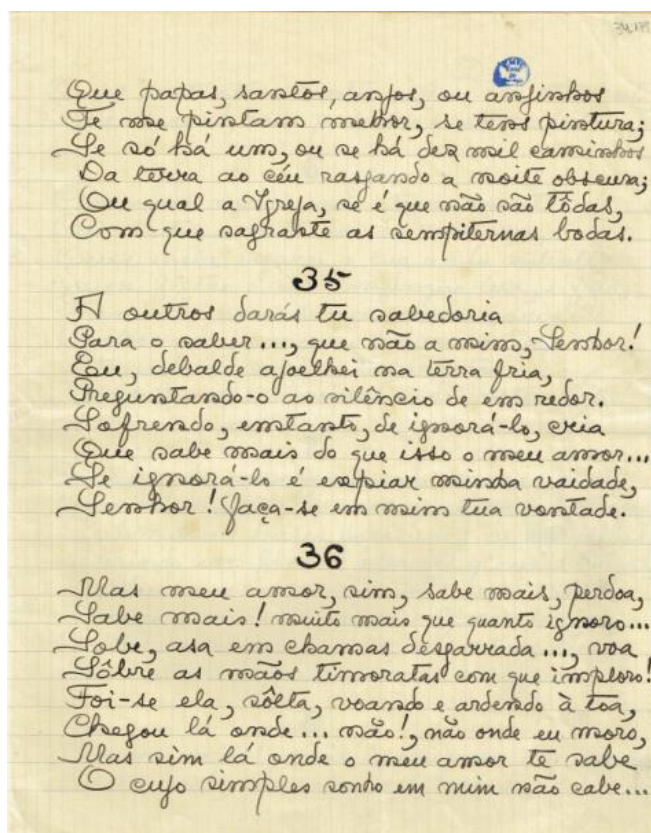 Que papas, santos, anjos, ou anjinhos
Te me pintam melhor, se tens pintura;
Se só há um, ou se há dez mil caminhos
Da terra ao céu rasgando a noite obscura;
Ou qual a Igreja, se é que não são tôdas,
Com que sagraste as sempiternas bodas.
35
A outros darás tu sabedoria
Para o saber..., que não a mim, Senhor!
Eu, debalde ajoelhei na terra fria,
Preguntando-o ao silêncio de em redor.
Sofrendo, entanto, de ignorá-lo, cria
Que sabe mais do que isso o meu amor...
Se ignorá-lo é expiar minha vaidade,
Senhor! faça-se em mim tua vontade.
36
Mas meu amor, sim, sabe mais, perdoa,
Sabe mais! muito mais que quanto ignoro...
Sobe, asa em chamas desgarrada..., voa
Sôbre as mãos timoratas com que imploro!
Foi-se ela, sôlta, voando e ardendo à toa,
Chegou lá onde... não!, não onde eu moro,
Mas sim lá onde o meu amor te sabe
O cujo simples sonho em mim não cabe...